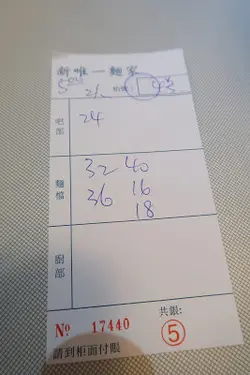 新唯一麵家
吧部
24
麵檔
32 40
36 16
18
廚部
共銀:
№ 17440
5
請到柜面付賬